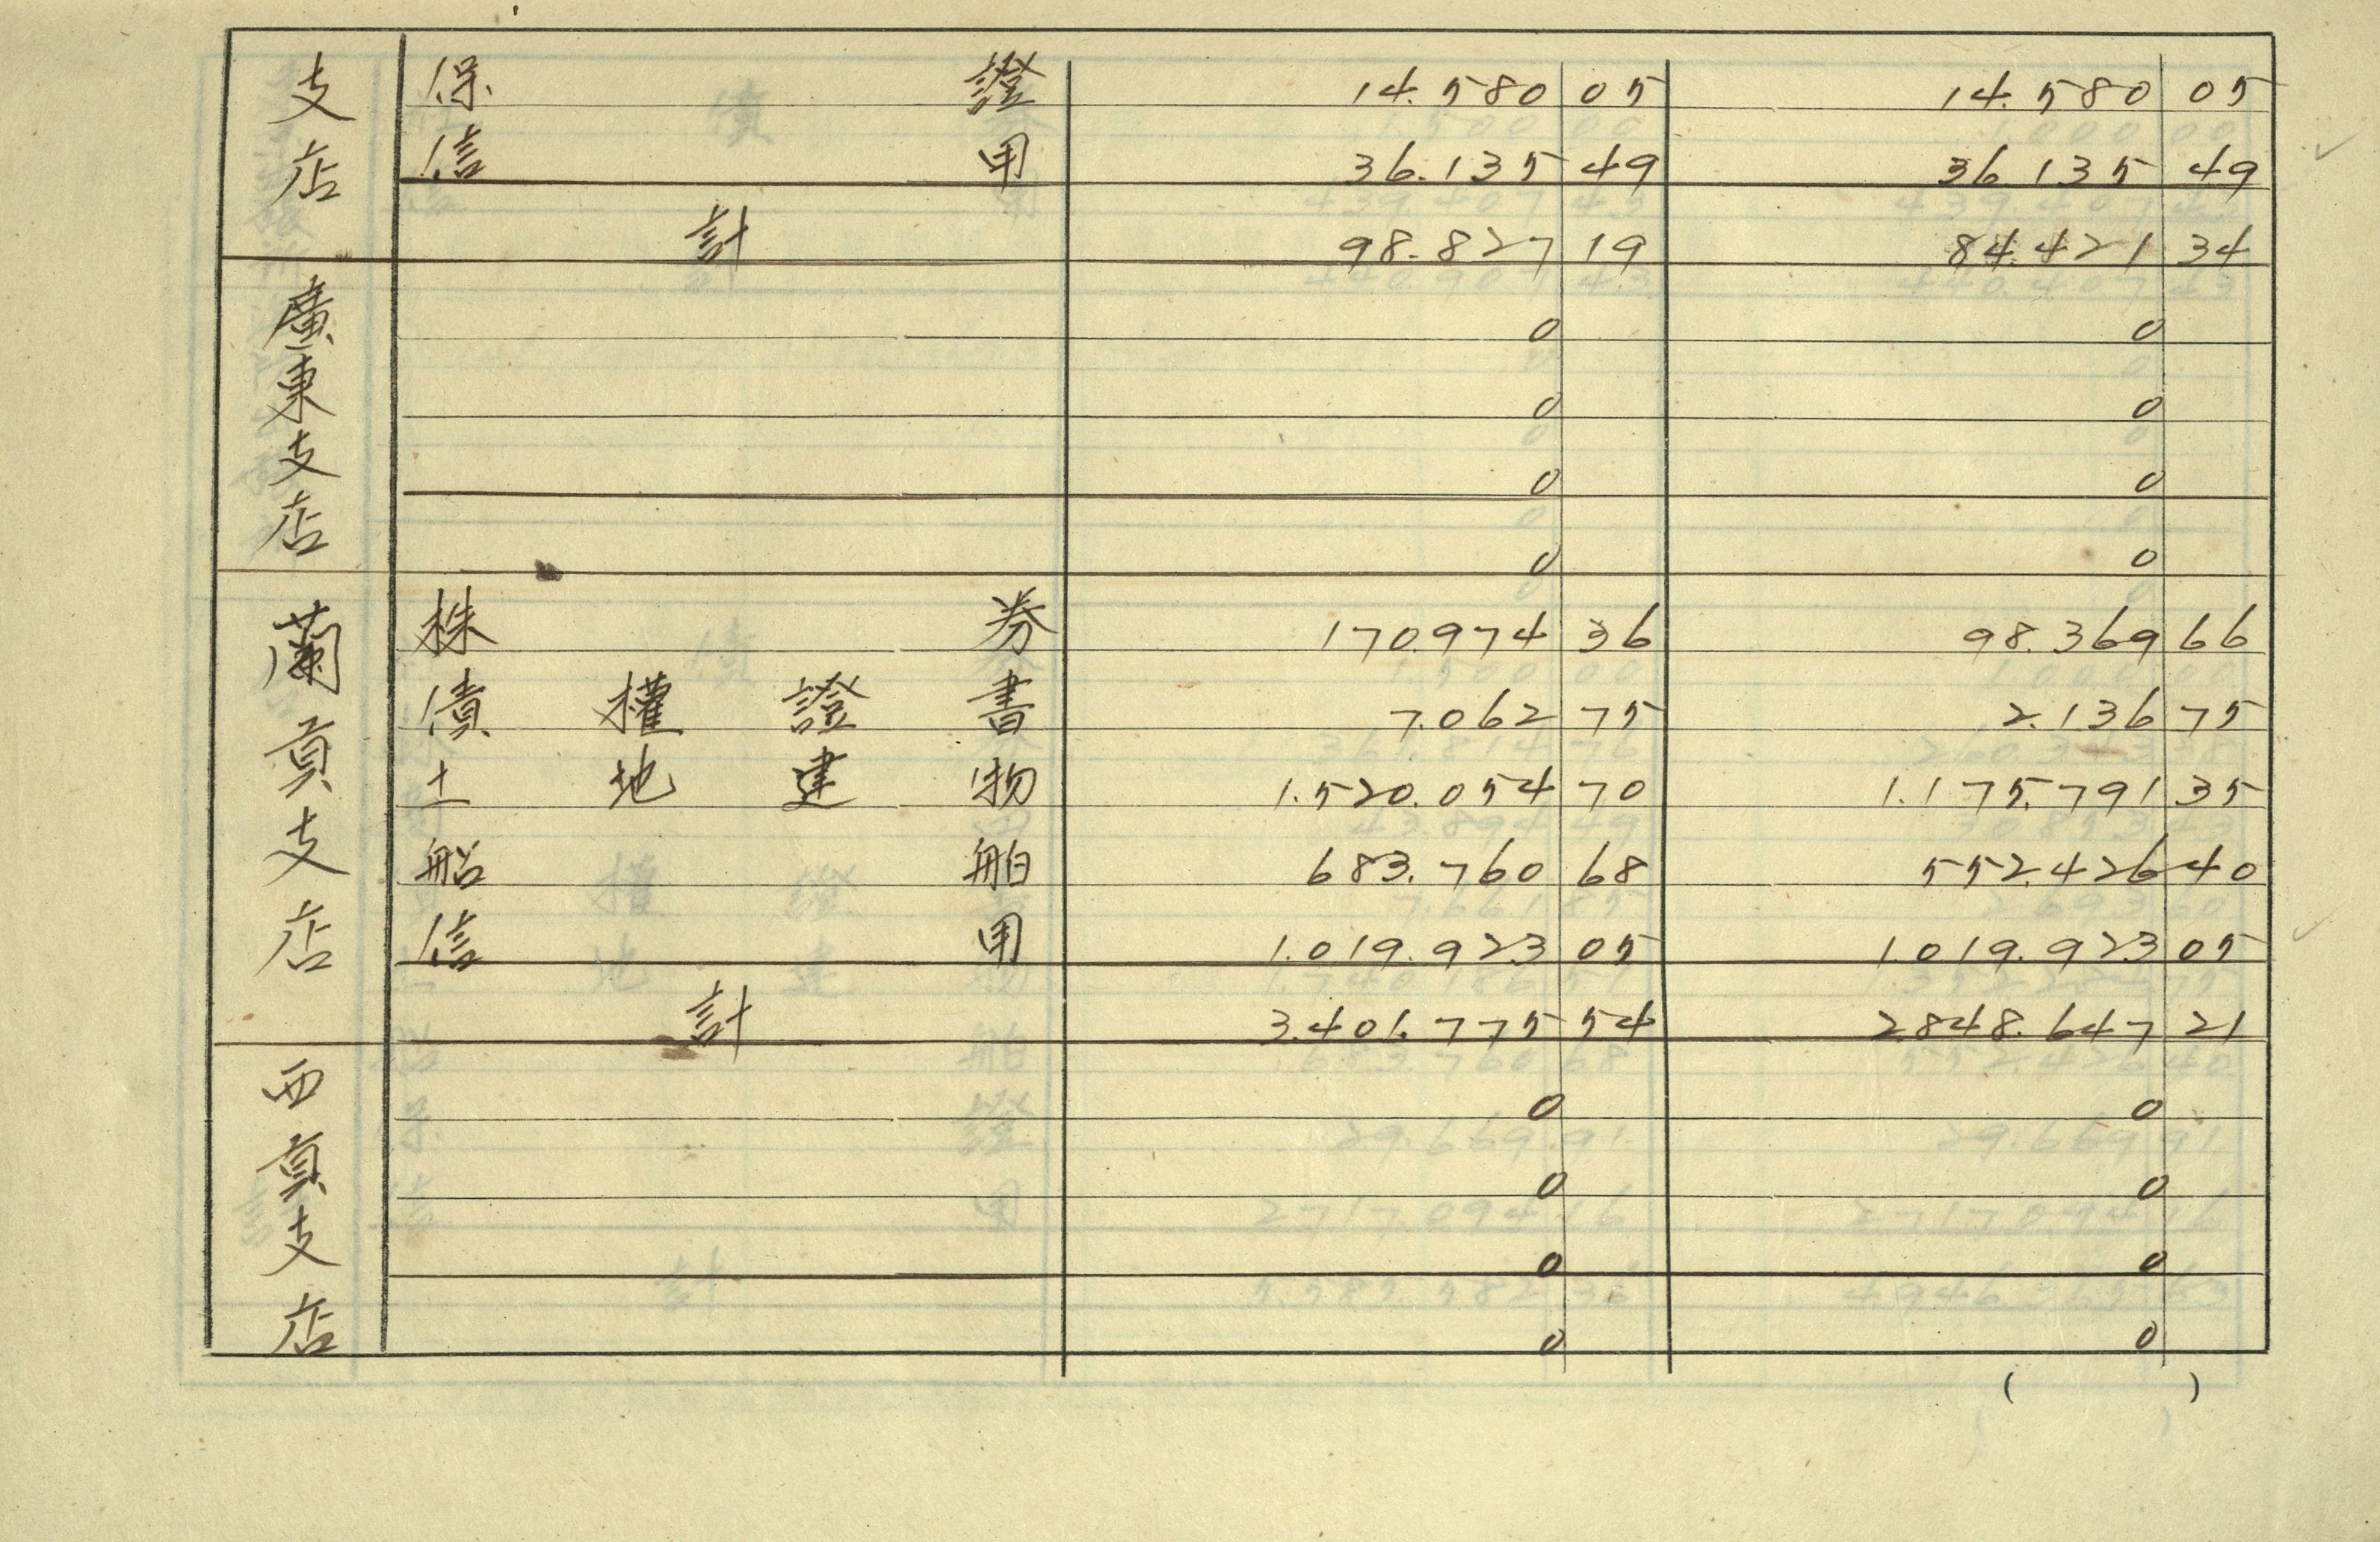 支店
保證 14.580 05 14.580 05
信用 36.135 49 36.135 49
計 98.827 19 84.421 34
廣東支店
0 0
0 0
0 0
0 0
蘭貢支店
株券 170.974 36 98.369 66
債權證書 7.062 75 2.136 75
土地建物 1.520.054 70 1.175.791 35
船舶 683.760 68 552.426 40
信用 1.019.923 05 1.019.923 05
計 3.401.775 54 2.848.647 21
西貢支店
0 0
0 0
0 0
0 0
( )